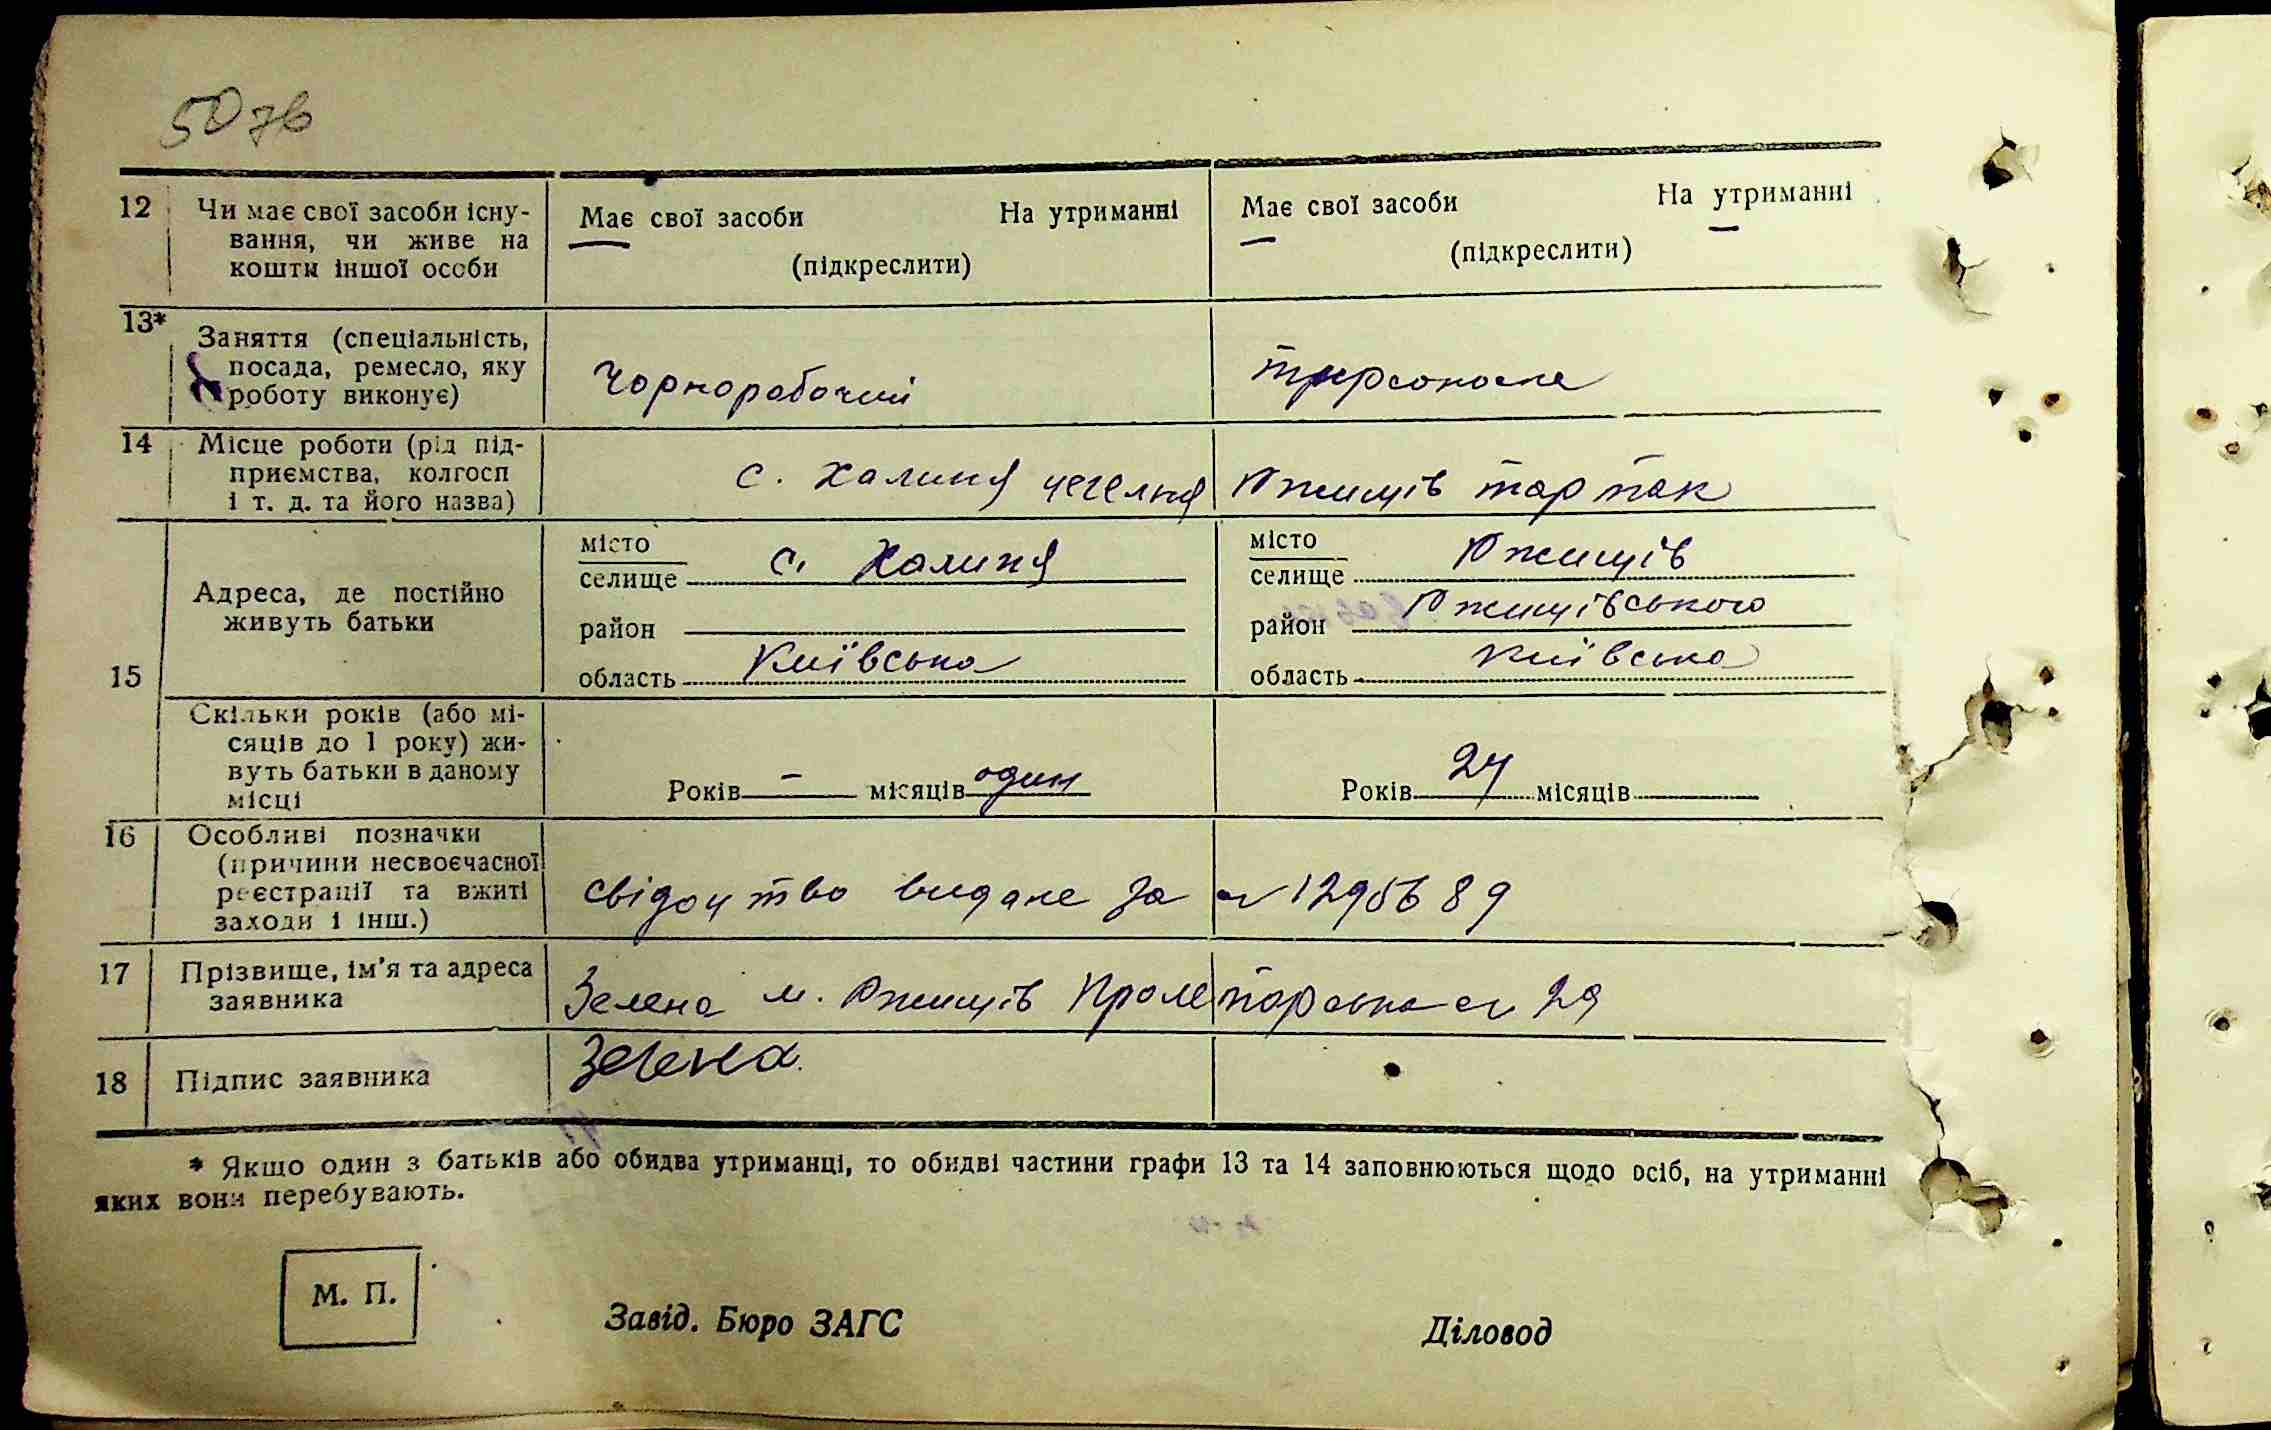 50 зв
12 Чи має свої засоби існу-
вання, чи живе на
кошти іншої особи
Має свої засоби На утриманні
(підкреслити)
Має свої засоби На утриманні
(підкреслити)
13* Заняття (спеціальність,
посада, ремесло, яку
роботу виконує)
Чорноробочий
14 Місце роботи (рід під-
приємства, колгосп
і т. д. та його назва)
с. Халиня цегельня
Ржищів
15 Адреса, де постійно
живуть батьки
місто
селище с. Халиня
район
область Київська
місто
селище Ржищів
район Ржищівського
область Київська
Скільки років (або мі-
сяців до 1 року) жи-
вуть батьки в даному
місці
Років — місяців один
Років 24 місяців
16 Особливі позначки
(причини несвоєчасної
реєстрації та вжиті
заходи і інш.)
свідоцтво видане за № 129
17 Прізвище, ім'я та адреса
заявника
Зелена м. Ржищів Пролетарська 29
18 Підпис заявника
Зелена
* Якщо один з батьків або обидва утриманці, то обидві частини графи 13 та 14 заповнюються щодо осіб, на утриманні
яких вони перебувають.
М. П.
Завід. Бюро ЗАГС
Діловод